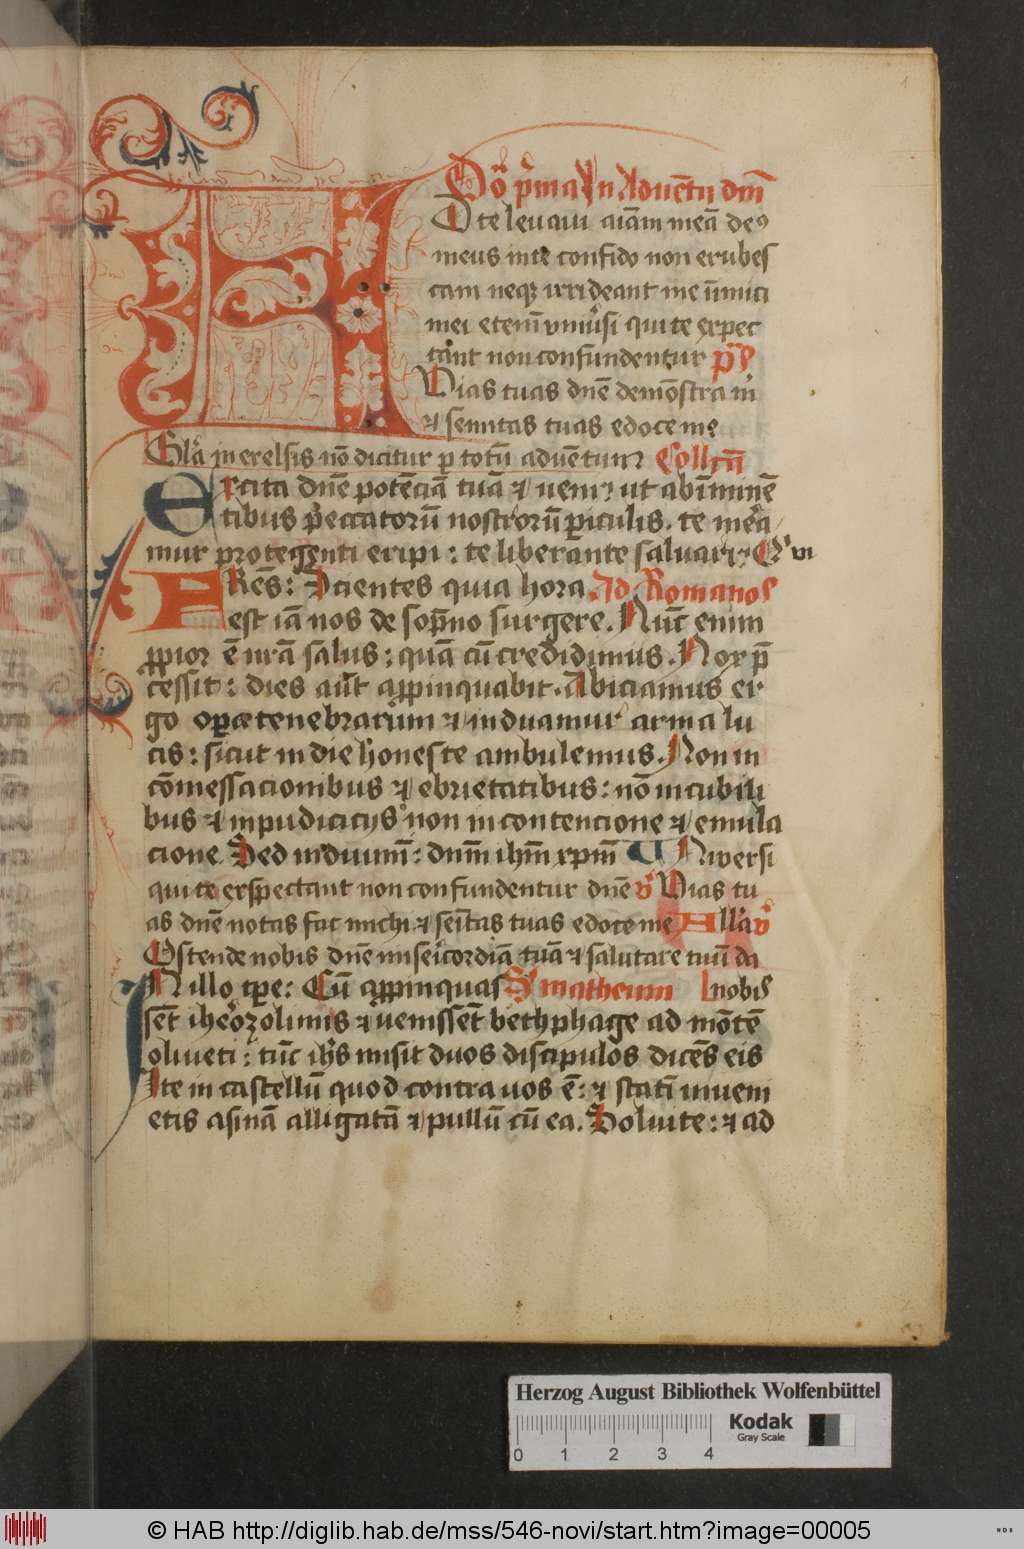 Dõ p̃ma In Aduẽtu dñi
AD te leuaui aĩam meã deꝰ
meus in te confido non erubes
cam neqꝫ irrideant me inimici
mei etenĩ vniũsi qui te expec
tant non confundentur p̃s
Vias tuas dñe demonstra m̃
⁊ semitas tuas edoce me
Glã in excelsis nõ dicitur ꝑ totũ aduẽtum Collcã
Excita dñe potẽciã tuã ⁊ veni ut ab ĩminẽ
tibus p̃eccatorũ nostrorũ ꝑiculis. te merea
mur protegenti eripi : te liberante saluari. Qui
FRẽs: Scientes quia hora Ad Romanos
est iã nos de sop̃no surgere. Nũc enim
ꝓpior ẽ nrã salus : quã cũ credidimus. Nox p̃
cessit : dies aũt apꝓinquabit. Abiciamus er
go opa tenebrarum ⁊ induamur arma lu
cis : sicut in die honeste ambulemus. Non in
cõmessacionibus ⁊ ebrietatibus : nõ in cubili
bus ⁊ inpudicicijs non in contencione ⁊ emula
cione. Sed induimĩ : dnm ihm xpm Vniuersi
qui te exspectant non confundentur dñe v̉ Vias tu
as dñe notas fac michi ⁊ semitas tuas edoce me Allã v̉
Ostende nobis dñe misericordiã tuã ⁊ salutare tuũ da
IN illo tpe: Cũ apꝓinquas S matheum nobis
sẽt iherozolimis ⁊ venissẽt bethphage ad mõtẽ
oliueti : tũc ihs misit duos discipulos dicẽs eis
Ite in castellũ quod contra uos ẽ : ⁊ statĩ inueni
etis asinã alligatã ⁊ pullũ cũ ea. Soluite : ⁊ ad
Herzog August Bibliothek Wolfenbüttel
Kodak
Gray Scale
0 1 2 3 4
© HAB http://diglib.hab.de/mss/546-novi/start.htm?image=00005